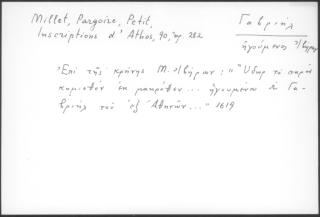 Millet, Pargoire, Petit,
Inscriptions d'Athos, 90, ἀρ. 282
Γαβριήλ
ἡγούμενος Ἰβήρων
Ἐπὶ τῆς κρήνης Μ. Ἰβήρων: "Ὕδωρ τὸ παρὸν
κομισθὲν ἐκ μακρόθεν... ἡγουμένου δὲ Γα-
βριὴλ τοῦ ἐξ Ἀθηνῶν..." 1619